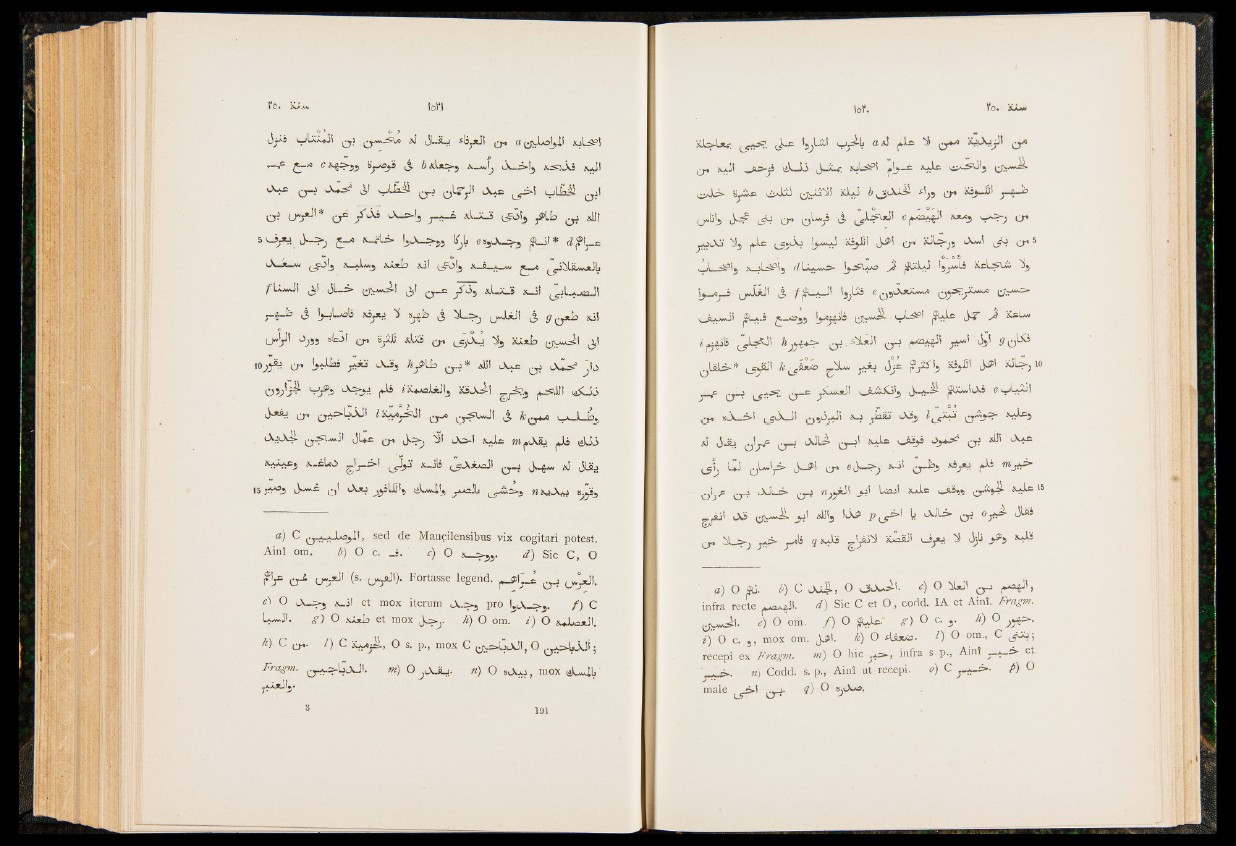 سنة ٢٥٠ ١٥٢٠
من الزيديّة ممن لا علم له a بالحرب اشاروا على يحيى بمعاجلة
الحسين والحّت عليه عوامّ اصحابه بمثل ذلك فزحف اليه من
ظهر الكوفة من وراء الخندق b ليلة الاثنين لثلث عشرة خلت
من رجب ومعه الهَيْضَم العجلىّ c فى فرسان من بنى عجل واناس
5 من بنى اسد ورجّالة من اهل الكوفة ليسوا بذوى علم ولا تدبير
ولا شجاعة فأَسْرَوْا ليلتهم ثم صبّحوا حسينا d واصحابه واصحابُ
حسين مستريحون مستعدّون e فثاروا اليهم f فى الغلس فرموا
ساعة ثم حمل عليهم اصحاب الحسين فانهزموا ووُضع فيهم السيف
فكان g اوّل اسير الهيضم بن العلاء بن جمهور h العجلىّ فانهزم i
10 رجّالة اهل الكوفة واكثرهم عُزّل بغير سلاح ضَعْفَى k القوى *خلقان
الثياب e فداستهم الخيل وانكشف العسكر عن يحيى بن عمر
وعليه جوشن تُبّتىّ l وقد تقطّر به البرذون الذى اخذه n من
عبد الله بن محمود فوقف عليه ابن لخالد بن عمران يقال له
خير m فلم يعرفه وظنّ انه رجل e من اهل خراسان لمّا رأى
عليه الجوشن ووقف عليه ايضا ابو الغور n بن خالد بن عمران 15
فقال لخير o بن خالد يا اخى p هذا والله ابو الحسين قد انفرج
قلبه وهو نازل لا يعرف القصّة لانفراج قلبه q فامر خير رجلا من
a) O لهم. b) C الجند, O الحندق. c) O الهيصم بن العلا,
infra recte الهيضم. d) Sic C et O, codd. IA et Ainî. Fragm.
الحسين. e) O om. f) O عليهم. g) O c. و. h) O جهور.
i) O c. و, mox om. اهل. k) O ضعفاء. l) O om., C
recepi ex Fragm. m) O hic, infra s p., Ainî et
n) Codd. s. p., Ainî ut recepi. o) C p) O
male بن اخى q) O صدره.
١٥٢١ سنة ٢٥٠
اصحابه المواصلين a من العرفاء يقال له محسن بن المُنْتاب فنزل
اليه فذبحه واخذ رأسه وجعله b فى قوصرة ووجّهه c مع عمر
ابن الخطّاب اخى عبد الرحمن بن الخطّاب الى محمد بن عبد
الله بن طاهر وادّعى قتله غير واحد فذكر عن *العرس بن
5 عراهم d *انهم وجدوه e باركا ووجدوا خاتمه مع رجل يعرف
بالعسقلانىّ مع سيفه وادّعى انه طعنه وسلبه وادّعى سعد
الضبابىّ انه قتله وذُكر عن ابى الحسين خال ابى السنا f
انه طعن g فى الغلس رجلا فى ظهره لا يعرفه فاصابوا فى ظهر
ابى الحسين طعنة ولا يُدْرَى من قتله لكثرة من ادّعاه وورد الرأس
10 دار محمّد بن عبد الله *بن طاهر h وقد تغيّر فطلبوا من يقوّر
ذلك اللحم ويخرج الحدقة والغلصمة i فلم يوجد وهرب الجزّارون
وطُلب ممن k فى السجن من الخُرّميّة l الذبّاحين من يفعل
ذلك فلم يقدم m عليه احد الّا رجل من عمّال السجن الجديد
يقال له سهل بن الصغدى فانه تولّى اخراج دماغه وعينيه
15 وقوّره بيديه n وحُشى بالصبر والمسك والكافور بعد ان غسل وصيّر
a) C, sed de Mauçilensibus vix cogitari potest.
Ainî om. b) O c. ف. c) O ووجه. d) Sic C, O
(s. الفرس). Fortasse legend. العرس بن عراهم.
e) O انه وجد et mox iterum وجد pro وجدوا. f) C
g) O طعنه et mox رجل. h) O om. i) O العصلمه.
k) C من. l) C الخزمية, O s. p., mox C الدباحين, O
Fragm. m) O يقدر. n) O بيده, mox بالمسك
والعنبر.
S 191